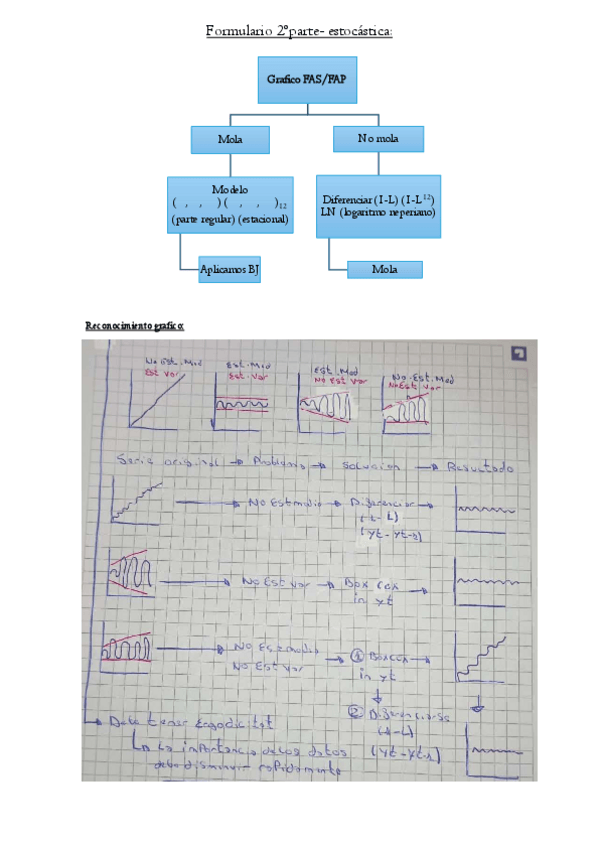 Formulario 2ºparte- estocástica:
Grafico FAS/FAP
Mola
No mola
Modelo
( , , ) ( , , )12
(parte regular) (estacional)
Diferenciar (I-L) (I-L12)
LN (logaritmo neperiano)
Aplicamos BJ
Mola
Reconocimiento grafico:
No Est. Med
Est Var
Est. Med
Est. Var
Est. Med
No Est Var
No. Est. Med
No Est Var
Serie original → Problema → Solucion → Resultado
No Est media → Diferenciar
(1 - L)
(yt - yt-1)
No Est Var → Box Cox
ln yt
No Est media
No Est Var
① Box Cox
ln yt
② Diferenciarse
(1-L)
(yt - yt-1)
Debe tener Ergodicitat
La importancia de los datos
debe disminuir rapidamente